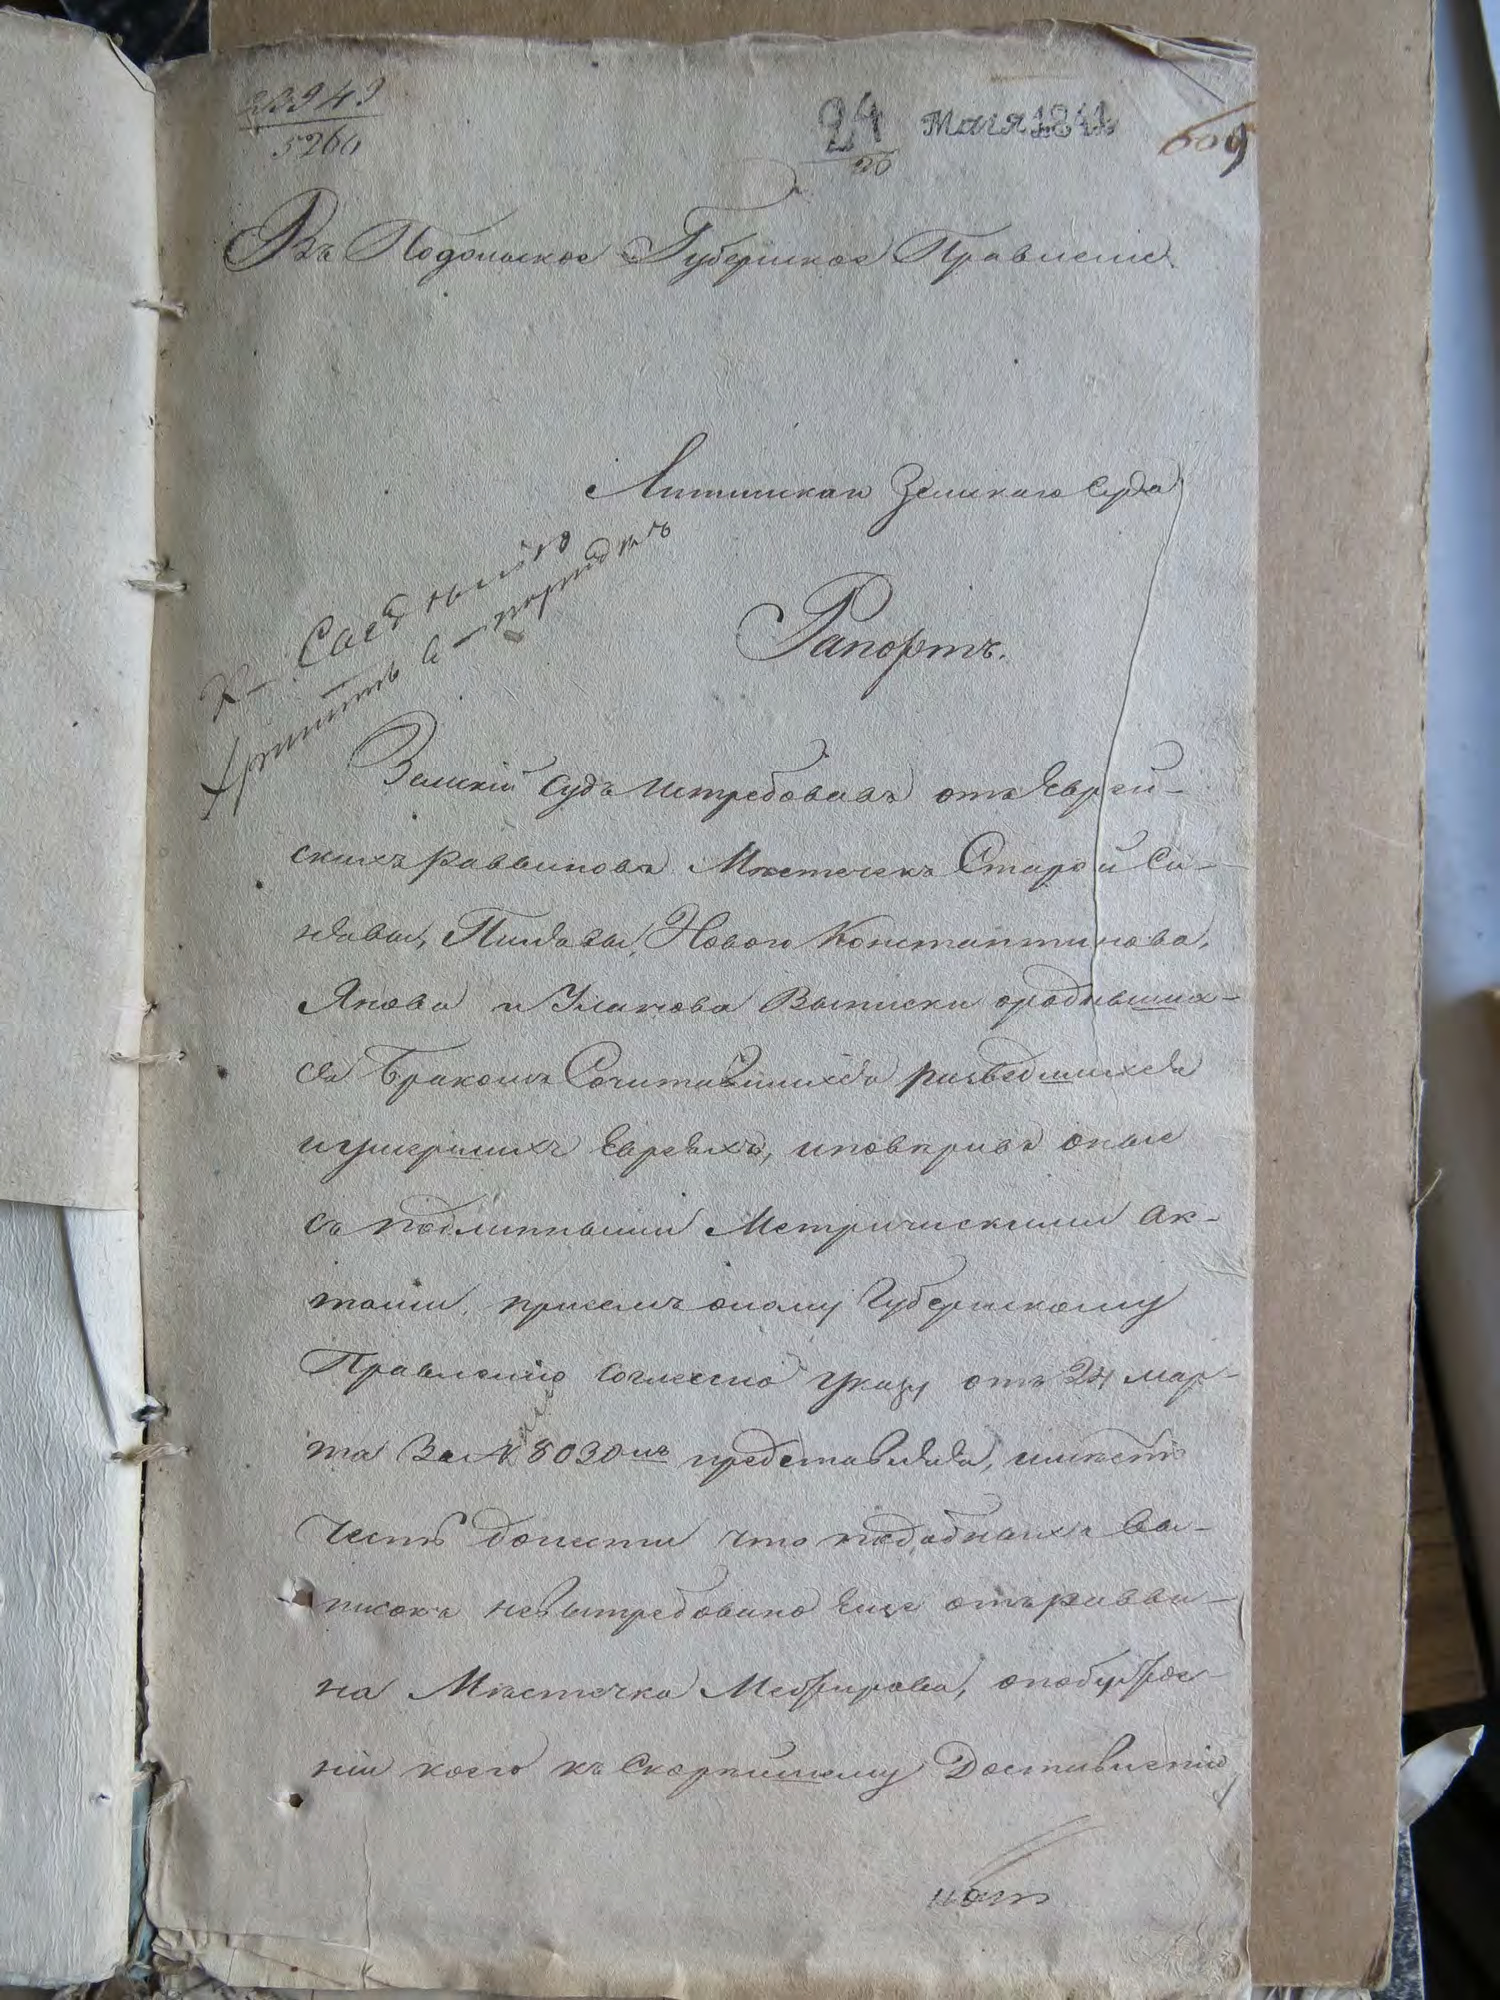 23949
5260
24 Мая 1841
609
Въ Подольское Губернское Правленіе
Литинскаго Земскаго Суда
Рапортъ.
Земскій Судъ истребовавъ отъ Еврей-
скихъ раввиновъ Мѣстечекъ Старой Си-
нявы, Пилявы, Новой Константинова,
Янова и Уланова Выписки ородивших-
ся Бракомъ Сочитавшихся разведшихся
иумершихъ Евреяхъ, иповѣривъ оные
съ подлинными Метрическими Ак-
тами, присемъ оному Губернскому
Правленію согласно указу отъ 24 мар-
та За № 8030мъ представляя, имѣетъ
честь донести что подобныхъ Вы-
писокъ невытребовано Еще отъ равви-
на Мѣстечка Межирова, опобужде-
ніи коего къ Скорѣйшему Доставленію